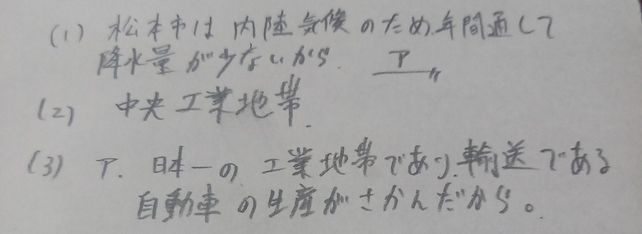 (1) 松本市は内陸気候のため、年間通して
降水量が少ないから. ア
(2) 中央工業地帯.
(3) ア. 日本一の工業地帯であり、輸送である
自動車の生産がさかんだから。